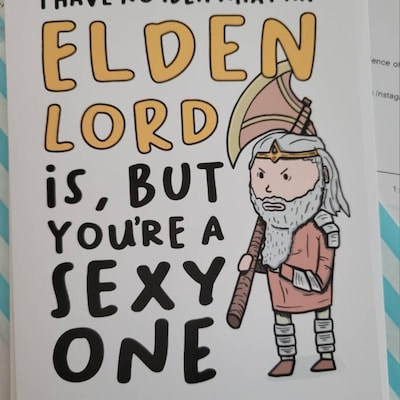 I HAVE NO IDEA WHAT AN
ELDEN
LORD
is, BUT
YOU'RE A
SEXY
ONE
ence o
instag